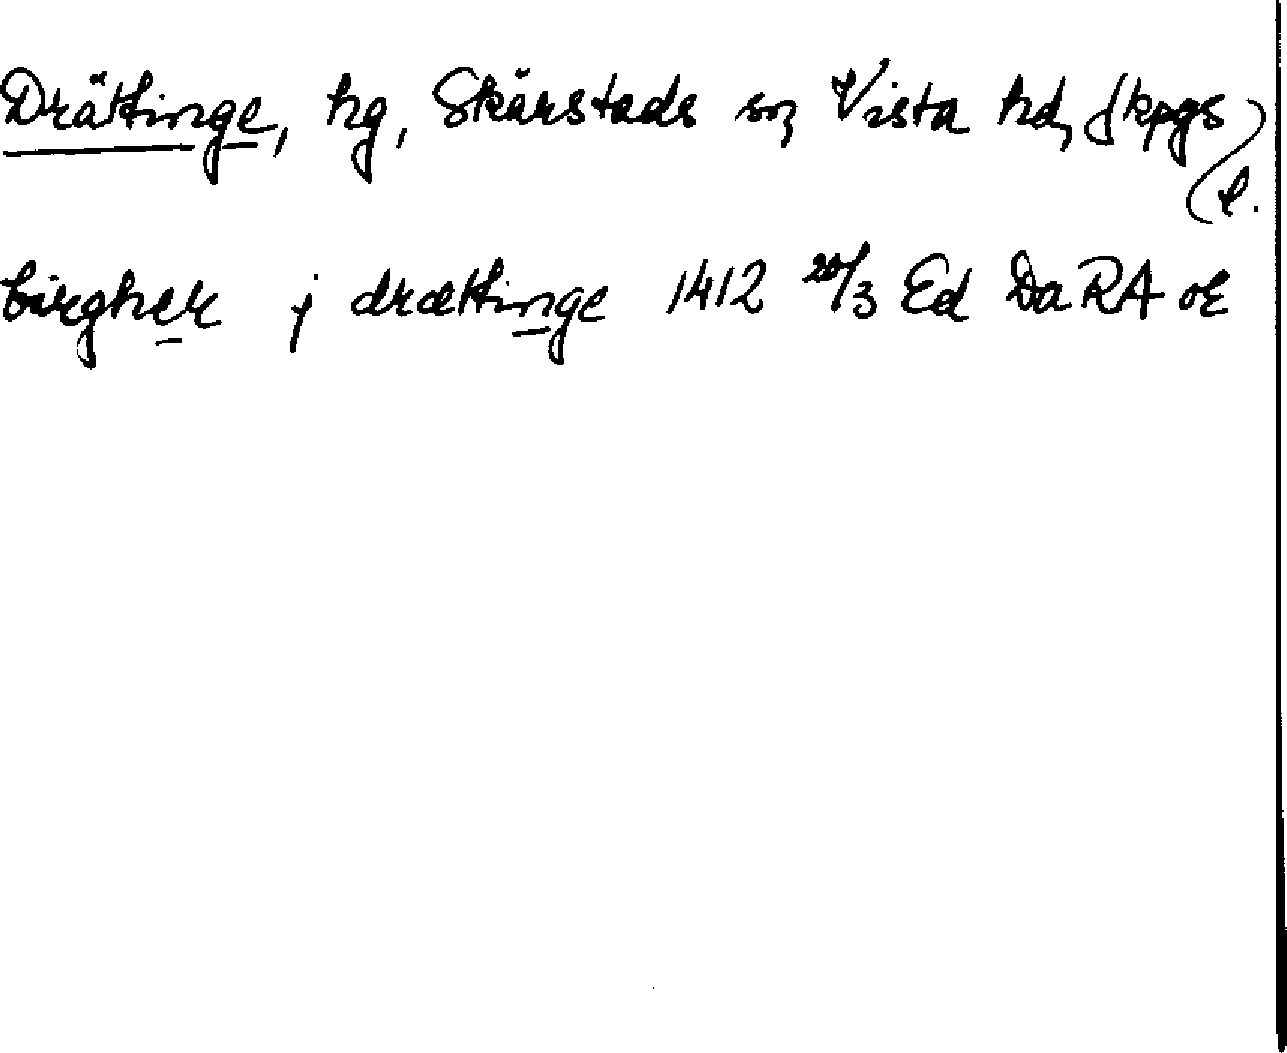 Drättinge, hg, Skärstads sn, Vista hd, Jkpgs
l.
birgher j drættinge 1412 20/3 Ed Da RA or